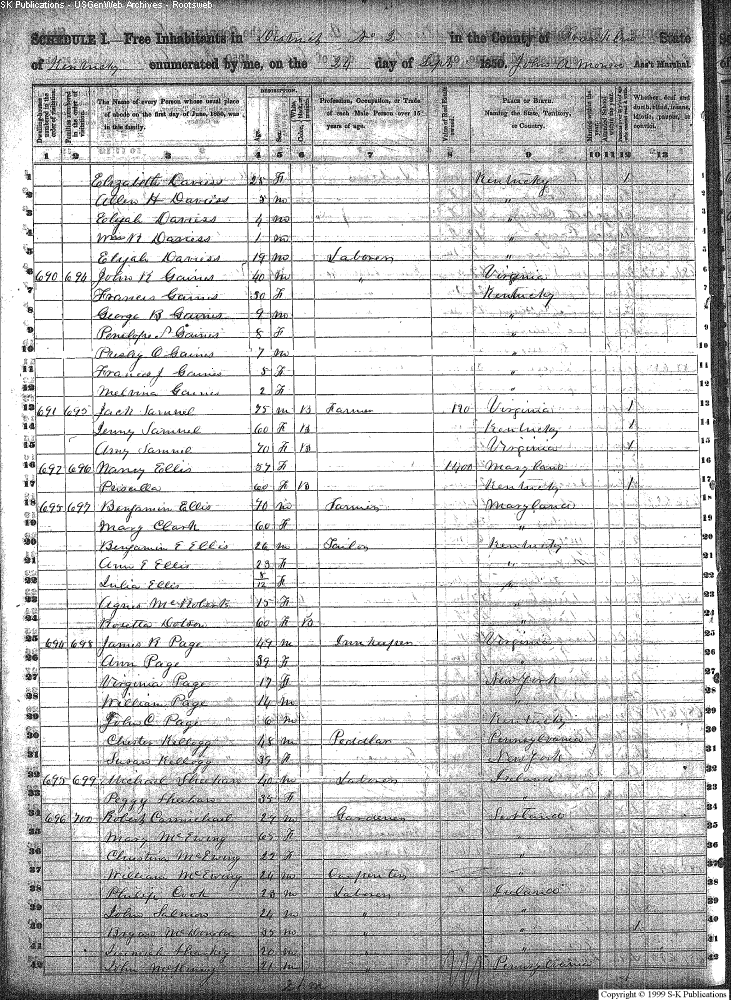 SK Publications - USGenWeb Archives - Rootsweb
SCHEDULE I. Free Inhabitants in District No 2 in the County of State
of Kentucky enumerated by me, on the 24 day of Sept 1850. Ass't Marshal
Dwelling-houses numbered in the order of visitation. Families numbered in the order of visitation. The Name of every Person whose usual place of abode on the first day of June, 1850, was in this family. DESCRIPTION. Age. Sex. Profession, Occupation, or Trade of each Male Person over 15 years of age. Value of Real Estate owned. PLACE OF BIRTH. Naming the State, Territory, or Country. Whether deaf and dumb, blind, insane, idiotic, pauper, or convict.
1 2 3 4 5 6 7 8 9 10 11 12 13
1 Elizabeth Daviess 25 F Kentucky 1 1
2 Allen H Daviess 5 m " 2
3 Elijah Daviess 4 m " 3
4 Daviess 1 m " 4
5 Elijah Daviess 19 m Laborer " 5
6 690 694 John K Gaines 40 m " Virginia 6
7 Frances Gaines 30 F Kentucky 7
8 George B Gaines 9 m " 8
9 Penelope S Gaines 8 F " 9
10 Presley O Gaines 7 m " 10
11 Frances J Gaines 5 F " 11
12 Melvina Gaines 2 F " 12
13 691 695 Jack Samuel 75 m B Farmer Virginia 1 13
14 Jenny Samuel 60 F B Kentucky 1 14
15 Amy Samuel 70 F B Virginia 1 15
16 692 696 Nancy Ellis 57 F 1400 Maryland 16
17 Priscilla 60 F B Kentucky 1 17
18 693 697 Benjamin Ellis 70 m Farmer Maryland 18
19 Mary Clark 60 F " 19
20 Benjamin F Ellis 26 m Tailor Kentucky 20
21 Ann E Ellis 23 F " 21
22 Julia Ellis 8/12 F " 22
23 Agnes McRoberts 15 F " 23
24 Rosetta Dotson 60 F B " 24
25 694 698 James R Page 49 m Innkeeper Virginia 25
26 Ann Page 39 F " 26
27 Virginia Page 17 F New York 27
28 William Page 14 m " 28
29 John C Page 6 m Kentucky 29
30 Chester Kellogg 48 m Peddlar Pennsylvania 30
31 Susan Kellogg 39 F New York 31
32 695 699 Michael Sheehan 40 m Laborer Ireland 32
33 Peggy Sheehan 35 F " 33
34 696 700 Robert Carmichael 27 m Gardener Scotland 34
35 Mary McEwing 65 F " 35
36 Christina McEwing 22 F " 36
37 William McEwing 24 m Carpenter " 37
38 Philip Cook 23 m Laborer Ireland 38
39 John Salmon 24 m " " 39
40 Bryan 35 m " " 1 40
41 20 m " " 41
42 John 21 m " Pennsylvania 42
Copyright © 1999 S-K Publications